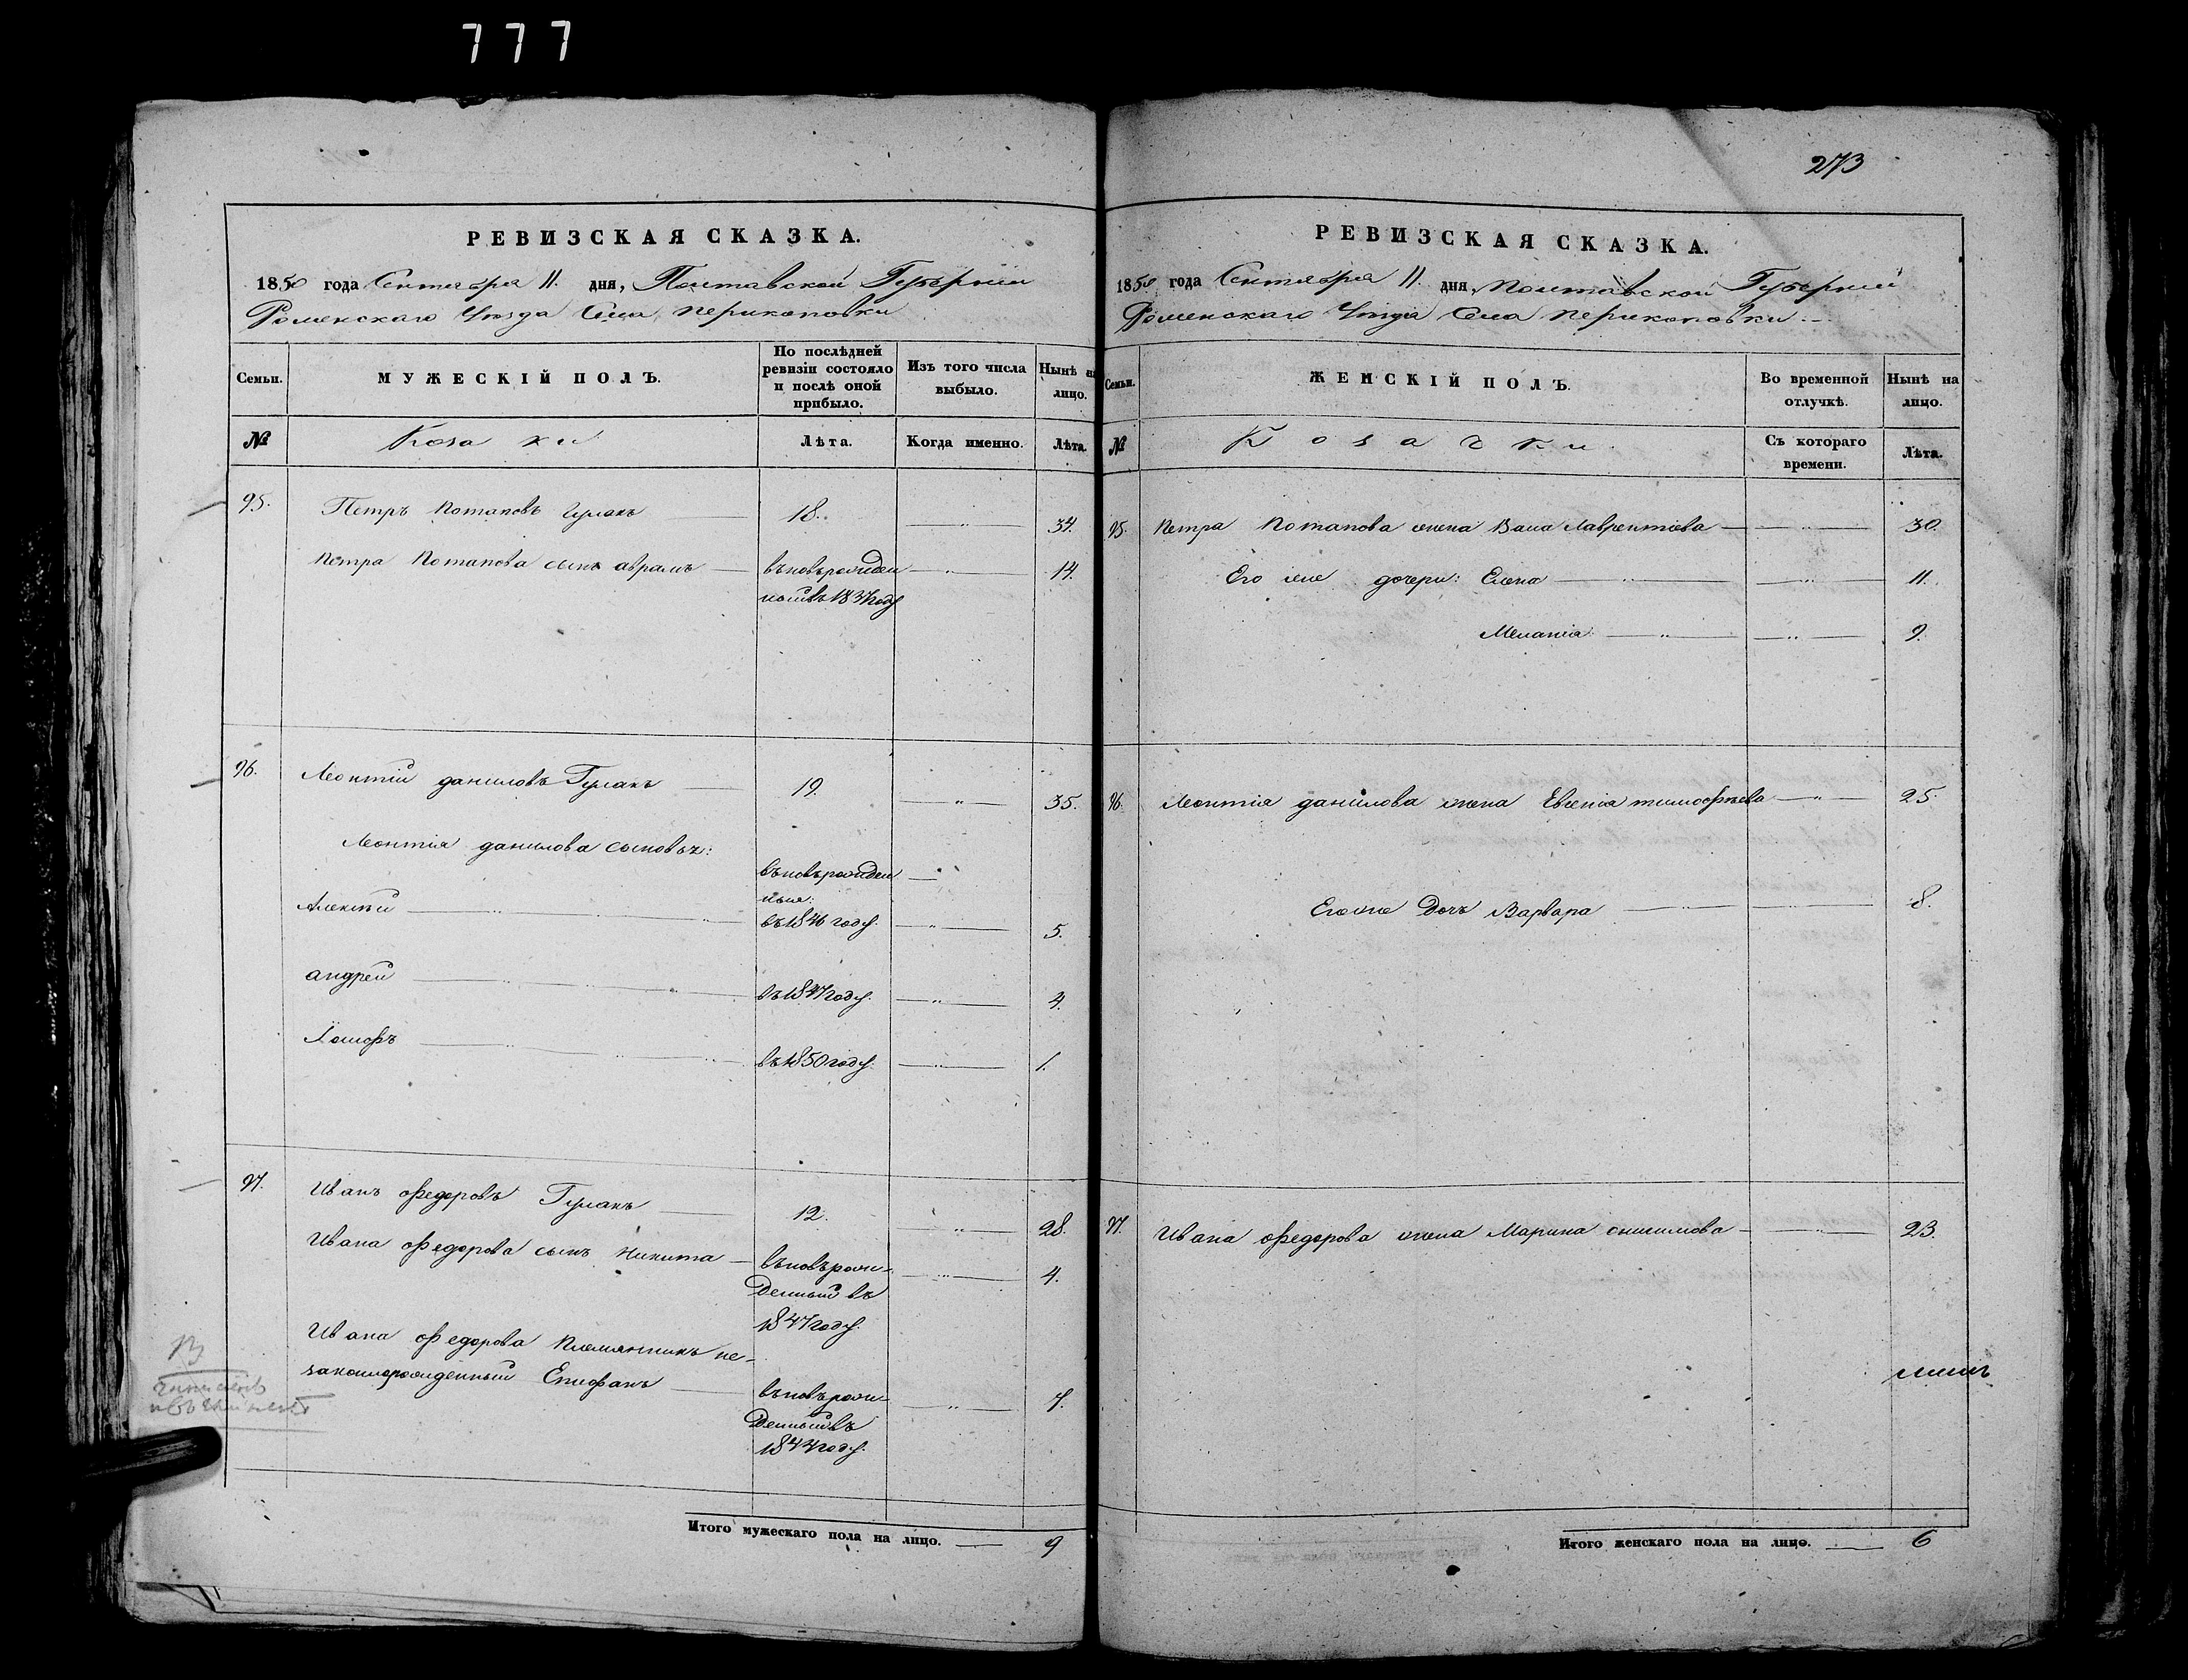 777
273
РЕВИЗСКАЯ СКАЗКА.
1850 года Сентября 11. дня, Полтавской Губерніи
Роменскаго Уѣзда Села Перикоповки
Семьи.
МУЖЕСКІЙ ПОЛЪ.
По послѣдней ревизіи состояло и послѣ оной прибыло.
Изъ того числа выбыло.
Нынѣ на лицо.
№
Козаки
Лѣта.
Когда именно.
Лѣта.
95. Петръ Потаповъ Гулакъ 18. 34.
Петра Потапова сынъ аврамъ вьновьрожден 14.
ный въ 1837 году
96. Леонтій даниловъ Гулакъ 19. 35.
Леонтія данилова сыновья:
вьновьрожден
ные:
Алексѣй въ 1846 году. 5.
андрей въ 1847 году. 4.
въ 1850 году. 1.
97. Иванъ Федоровъ Гулакъ 12. 28.
Ивана Федорова сынъ Никита вьновьрож- 4.
денный въ
1847 году.
Ивана Федорова племянникъ не-
законнорожденный Епифанъ вьновьрож- 7.
денный въ
1844 году.
Итого мужескаго пола на лицо. 9
РЕВИЗСКАЯ СКАЗКА.
1850 года Сентября 11. дня, Полтавской Губерніи
Роменскаго Уѣзда Села Перикоповки
Семьи.
ЖЕНСКІЙ ПОЛЪ.
Во временной отлучкѣ.
Нынѣ на лицо.
№
Козачки
Съ котораго времени.
Лѣта.
95. Петра Потапова жена Лаврентіева 30.
Его же дочери: Елена 11.
Меланія 9.
96. Леонтія данилова жена Евгенія тимофѣева 25.
Его же Дочь Варвара 8.
97. Ивана Федорова жена Марина онисимова 23.
Итого женскаго пола на лицо. 6